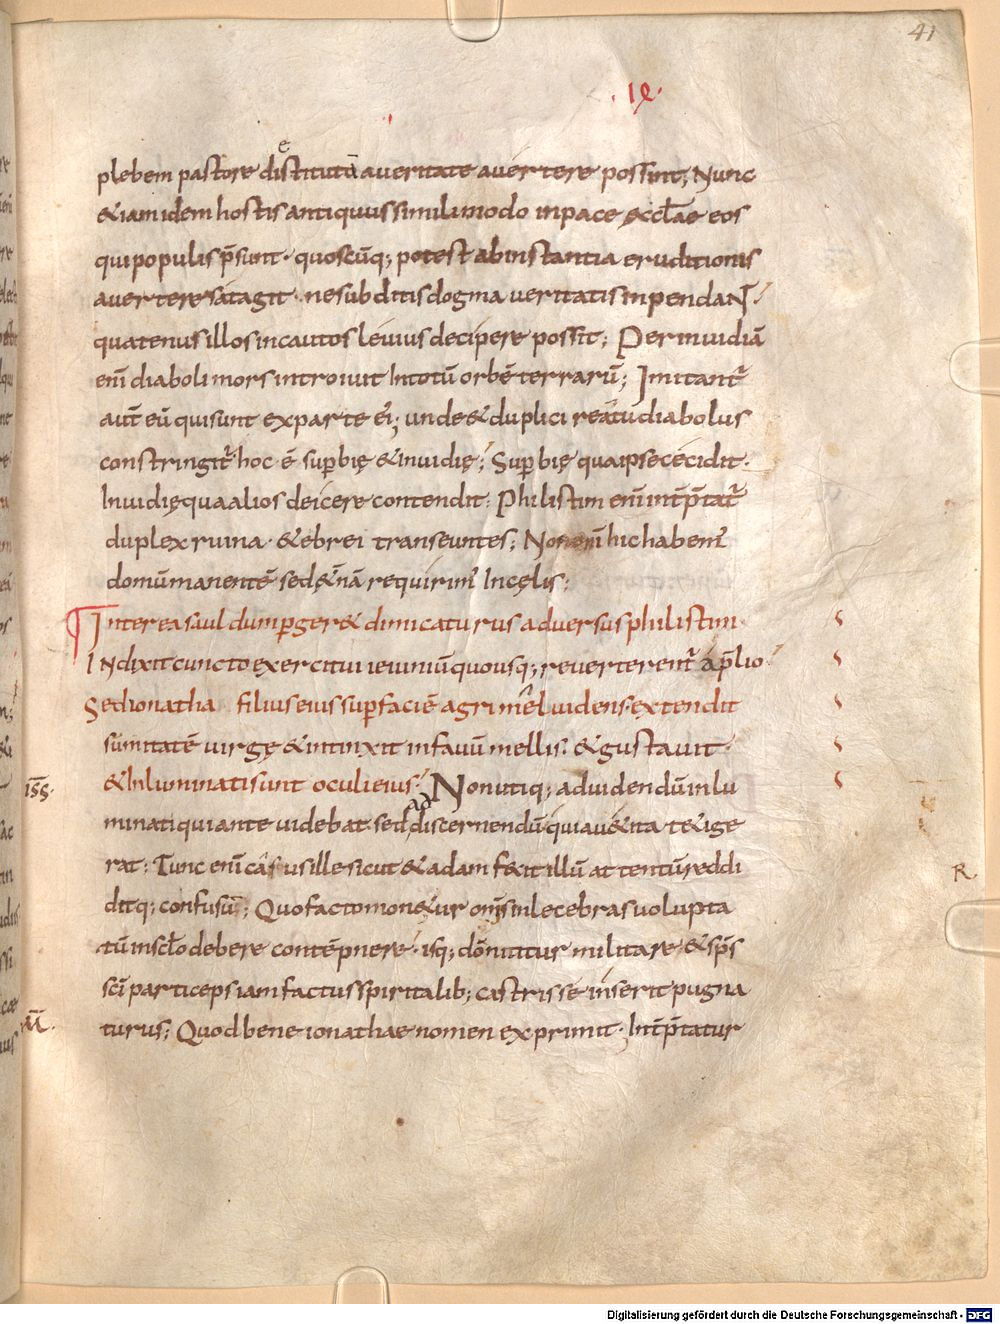 41
·IX·
plebem pastore distitutū a ueritate auertere possint; Nunc
&iam idem hostis antiquus simili modo in pace eccłae eos
qui populis p̄sunt· quoscūq; potest ab instantia eruditionis
auertere satagit· ne subditis dogma ueritatis inpendaNT·
quatenus illos incautos leuius decipere possit; Per inuidiā
eni̅ diaboli mors introiuit In totū orbē terrarū; Imitant̄
aut̄ eū qui sunt ex parte ei; unde & duplici reatu diabolus
constringit̄· hoc· ē superbię & inuidię; Superbię qua ipse cecidit·
Inuidię qua alios deicere contendit· Philistim eni̅ int̄p̄tat̄
duplex ruina· & ebrei transeuntes; Non eni̅ hic habem̄
domū manentē sed &̄nā requirim̄ In cęlis;
Interea saul dum perger& dimicaturus aduersus philistim·
INdixit cuncto exercitui ieiuniū quousq; reuerterent̄ a p̄lio·
Sed ionatha filius eius sup faciē agri mel uidens· extendit
sūmitatē uirgę & intinxit in fauū mellis· & gustauit·
& Inluminati sunt oculi eius· Non utiq; ad uidendū inlu
minati qui ante uidebat sed ad discernendū quia u&ita t&ige
rat· Tunc eni̅ casus ille sicut & adam fecit illū attentū reddi
ditq; confusū; Quo facto mon&ur om̄s inlecebras uolupta
tū in scło debere contēpnere· isq; dōi nititur militare· & sp̄s
sc̄i particeps iam factus spiritalib; castris se inserit pugna
turus; Quod bene ionathae nomen exprimit· Int̄p̄tatur
R
Digitalisierung gefördert durch die Deutsche Forschungsgemeinschaft - DFG